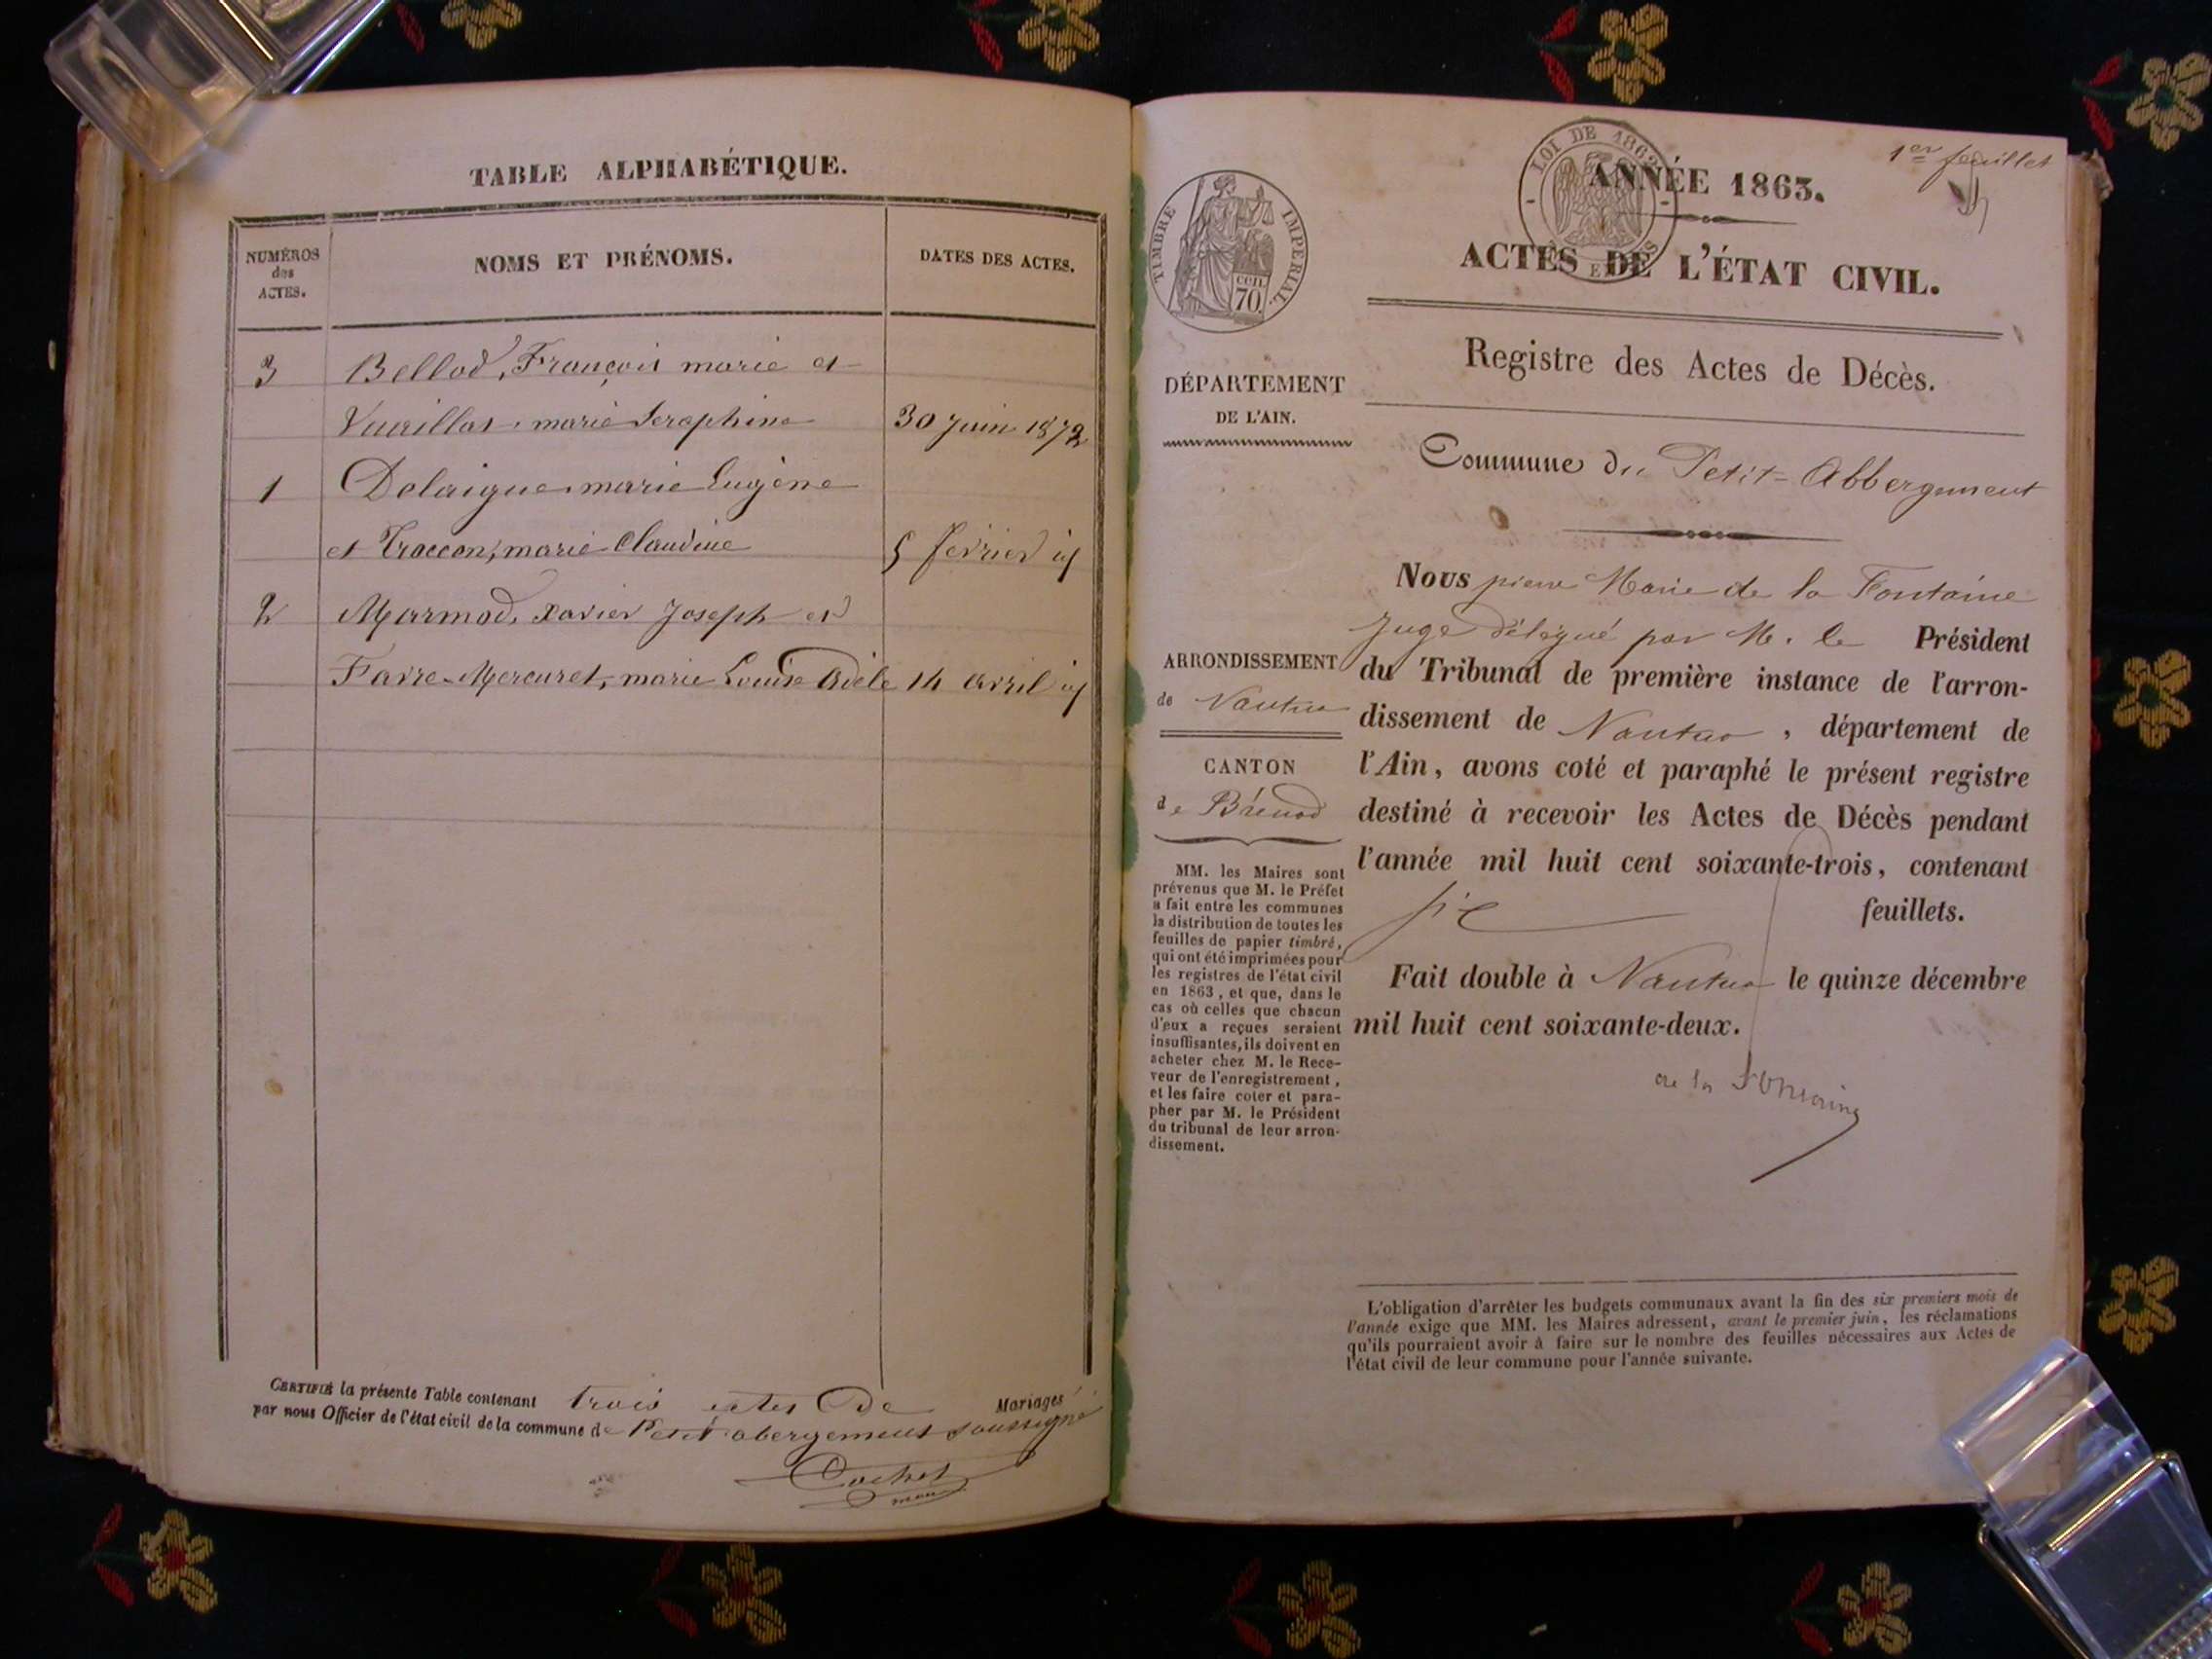 TABLE ALPHABÉTIQUE.
NUMÉROS
des
ACTES.
NOMS ET PRÉNOMS.
DATES DES ACTES.
3 Bellod, François marie et
Vuaillat, marie Seraphine 30 Juin 1872
1 Delaigue marie Eugène
et Troccon, marie Claudine 5 février id
2 Marmod, Xavier Joseph et
Favre-Mercuret, marie Louise Adèle 14 avril id
CERTIFIÉ la présente Table contenant trois actes de Mariages
par nous Officier de l'état civil de la commune de Petit abergement soussigné
Cochet
maire
1er feuillet
LOI DE 1862
TIMBRE IMPÉRIAL.
CEN.
70.
ANNÉE 1863.
ACTES DE L'ÉTAT CIVIL.
Registre des Actes de Décès.
DÉPARTEMENT
DE L'AIN.
Commune du Petit-Abbergement
ARRONDISSEMENT
de Nantua
CANTON
de Brénod
MM. les Maires sont
prévenus que M. le Préfet
a fait entre les communes
la distribution de toutes les
feuilles de papier timbré,
qui ont été imprimées pour
les registres de l'état civil
en 1863, et que, dans le
cas où celles que chacun
d'eux a reçues seraient
insuffisantes, ils doivent en
acheter chez M. le Rece-
veur de l'enregistrement,
et les faire coter et para-
pher par M. le Président
du tribunal de leur arron-
dissement.
Nous pierre Marie de la Fontaine
Juge délégué par M. le Président
du Tribunal de première instance de l'arron-
dissement de Nantua, département de
l'Ain, avons coté et paraphé le présent registre
destiné à recevoir les Actes de Décès pendant
l'année mil huit cent soixante-trois, contenant
six feuillets.
Fait double à Nantua le quinze décembre
mil huit cent soixante-deux.
de la Fontaine
L'obligation d'arrêter les budgets communaux avant la fin des six premiers mois de
l'année exige que MM. les Maires adressent, avant le premier juin, les réclamations
qu'ils pourraient avoir à faire sur le nombre des feuilles nécessaires aux Actes de
l'état civil de leur commune pour l'année suivante.